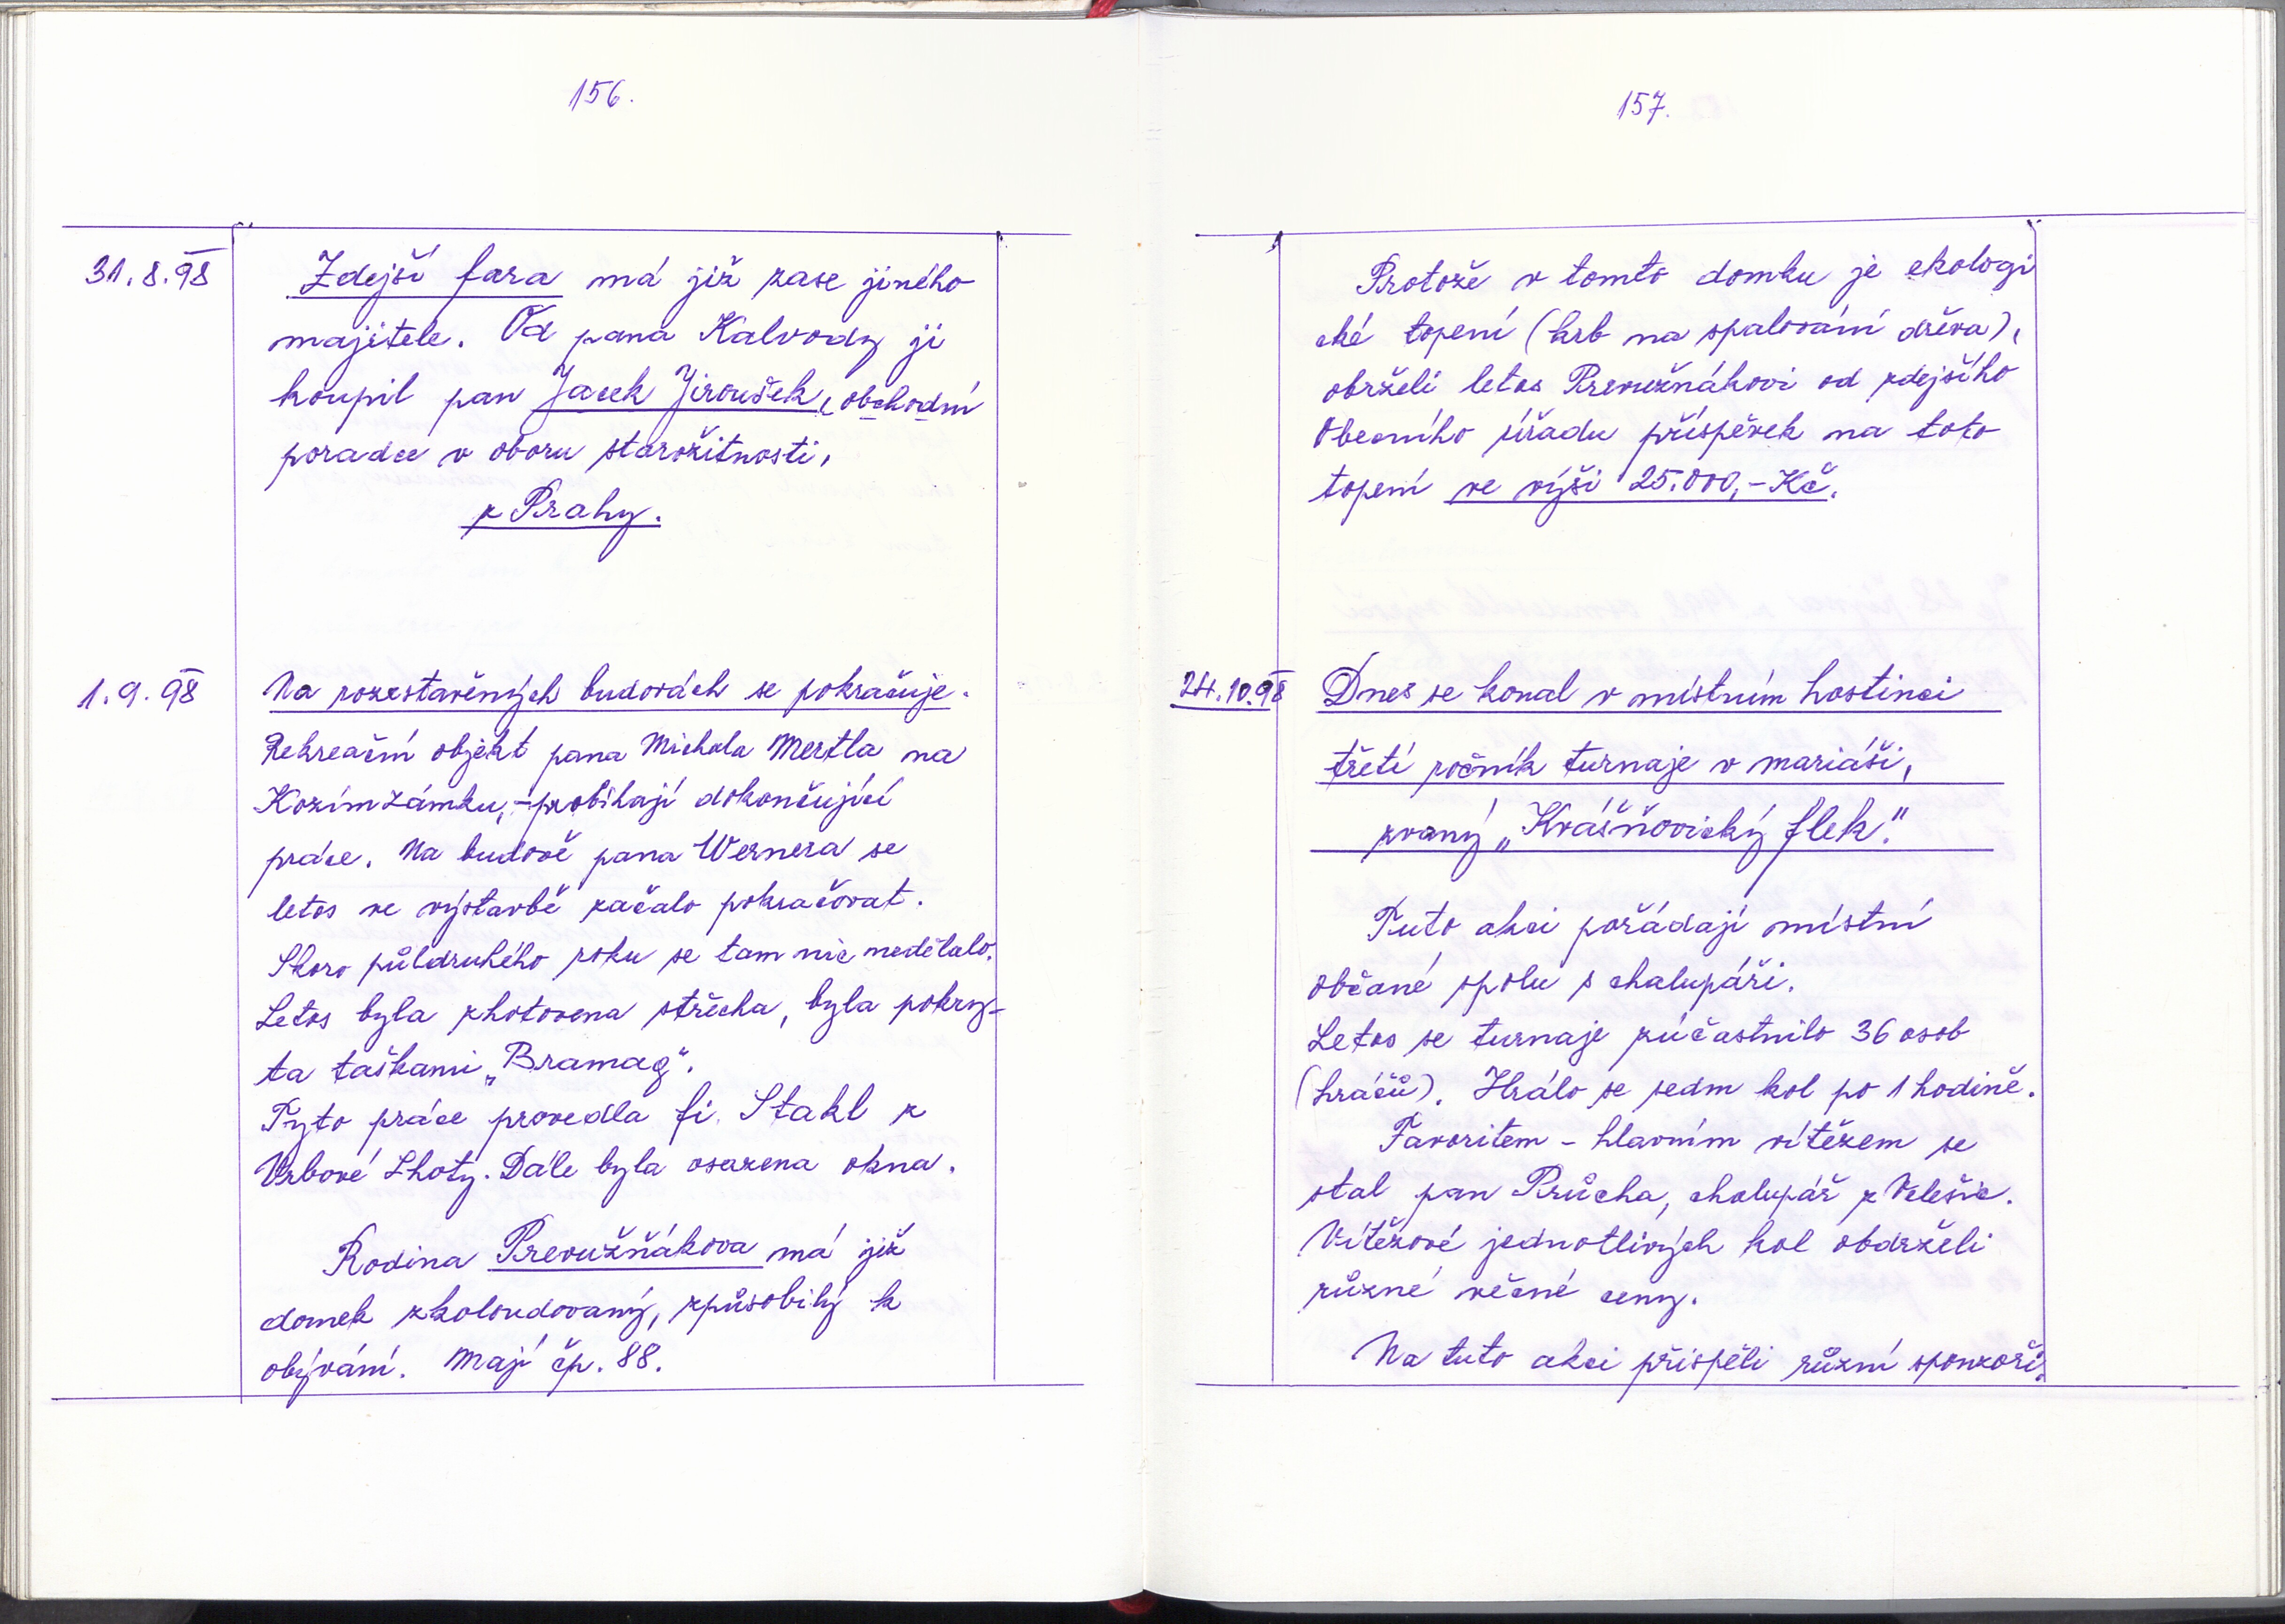 156.
31.8.98
Zdejší fara má již zase jiného
majitele. Od pana Kalvody ji
koupil pan Jacek Jiroušek, obchodní
poradce v oboru starožitnosti,
z Prahy.
1.9.98
Na rozestavěných budovách se pokračuje.
Rekreační objekt pana Michala Mertla na
Kozímzámku, - probíhají dokončující
práce. Na budově pana Wernera se
letos ve výstavbě začalo pokračovat.
Skoro půldruhého roku se tam nic nedělalo.
Letos byla zhotovena střecha, byla pokry-
ta taškami „Bramag“.
Tyto práce provedla fi. Stakl z
Vrbové Lhoty. Dále byla osazena okna.
Rodina Prevužňákova má již
domek zkoloudovaný, způsobilý k
obývání. Mají čp. 88.
157.
Protože v tomto domku je ekologi
cké topení (krb na spalování dřeva),
obrželi letos Prevužňákovi od zdejšího
Obecního úřadu příspěvek na toto
topení ve výši 25.000,- Kč.
24.10.98
Dnes se konal v místním hostinci
třetí ročník turnaje v mariáši,
zvaný „Krášňovický flek“.
Tuto akci pořádají místní
občané spolu s chalupáři.
Letos se turnaje zúčastnilo 36 osob
(hráčů). Hrálo se sedm kol po 1 hodině.
Favoritem - hlavním vítězem se
stal pan Průcha, chalupář z Velešic.
Vítězové jednotlivých kol obdrželi
různé věcné ceny.
Na tuto akci přispěli různí sponzoři.